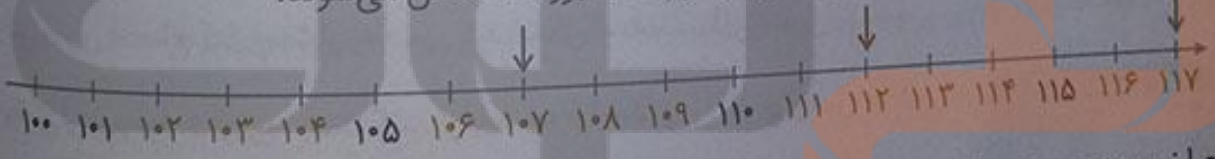 ۱۰۰ ۱۰۱ ۱۰۲ ۱۰۳ ۱۰۴ ۱۰۵ ۱۰۶ ۱۰۷ ۱۰۸ ۱۰۹ ۱۱۰ ۱۱۱ ۱۱۲ ۱۱۳ ۱۱۴ ۱۱۵ ۱۱۶ ۱۱۷